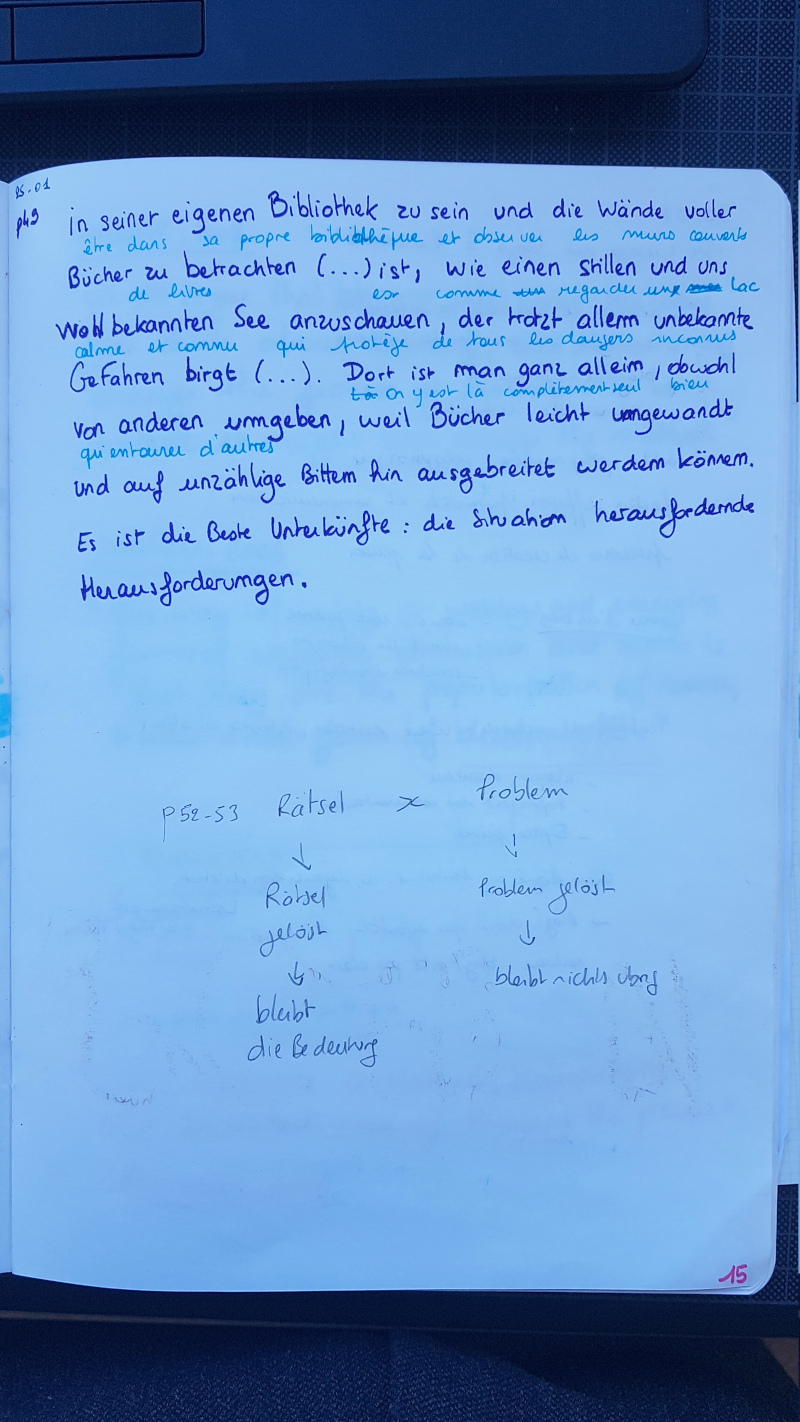 25.01
p49 in seiner eigenen Bibliothek zu sein und die Wände voller
être dans sa propre bibliothèque et observer les murs couverts
Bücher zu betrachten (...) ist, wie einen stillen und uns
de livres est comme regarder un lac
Wohlbekannten See anzuschauen, der trotzt allem unbekannte
calme et connu qui protège de tous les dangers inconnus
Gefahren birgt (...). Dort ist man ganz allein, obwohl
On y est là complètement seul bien
von anderen umgeben, weil Bücher leicht umgewandt
qu'entourer d'autres
und auf unzählige Bitten hin ausgebreitet werden können.
Es ist die Beste Unterkünfte : die Situation herausfordernde
Herausforderungen.
p52-53 Rätsel x Problem
↓ ↓
Rätsel Problem gelöst
gelöst ↓
↓ bleibt nichts übrig
bleibt
die Bedeutung
15